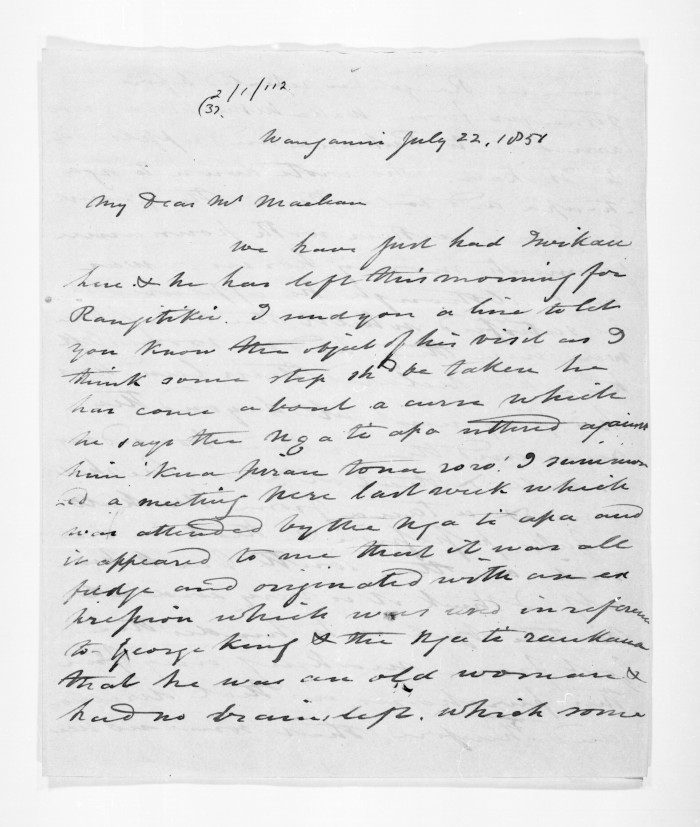 2/1/112
(37.
Wanganui July 22, 1851
My Dear Mr Maclean
We have just had Iwikau
here & he has left this morning for
Rangitikei. I send you a line to let
you know the object of his visit as I
think some step shd be taken he
has come about a curse which
he says the Nga ti apa uttered against
him 'Kua pirau tona roro'. I summon
-ed a meeting here last week which
was attended by the Nga ti apa and
it appeared to me that it was all
fudge and originated with an ex
pression which was used in reference
to George King & the Nga ti raukaua
that he was an old woman &
had no brains left. which some